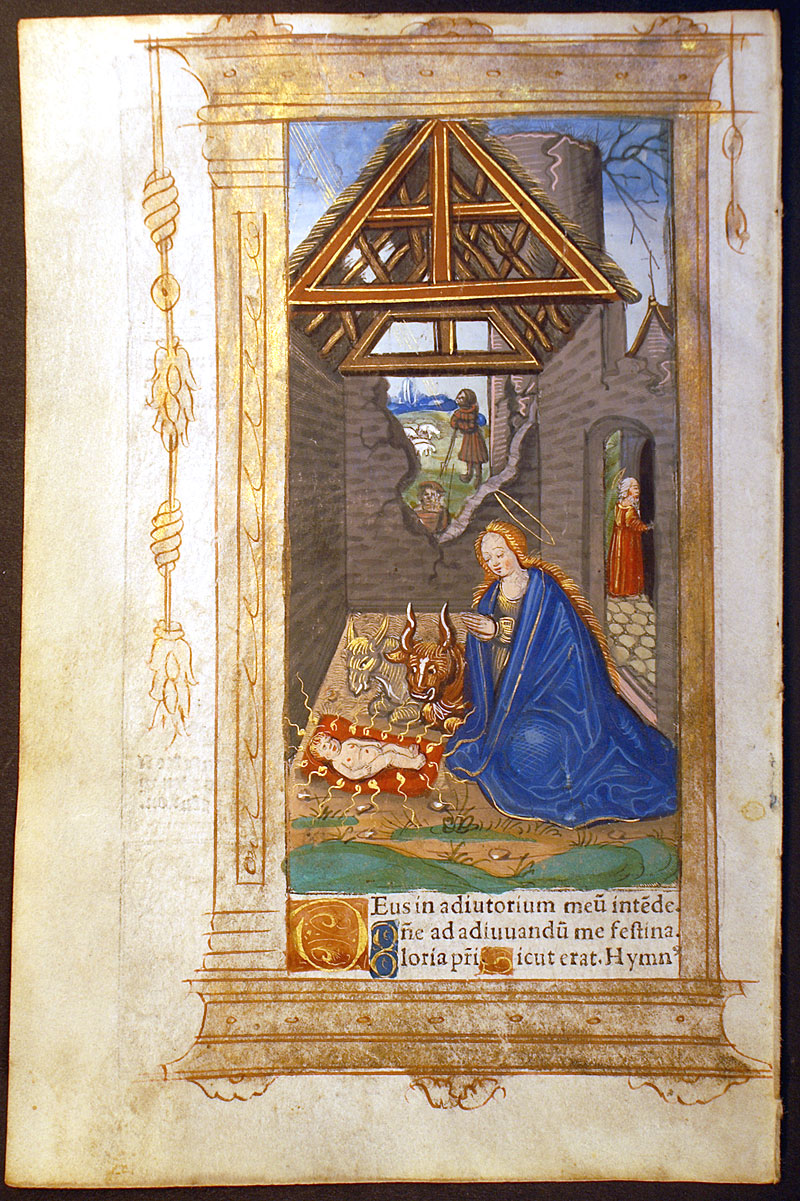 DEus in adiutorium meū intēde.
Dñe ad adiuuandū me festina.
Gloria pŕi Sicut erat. Hymnꝰ